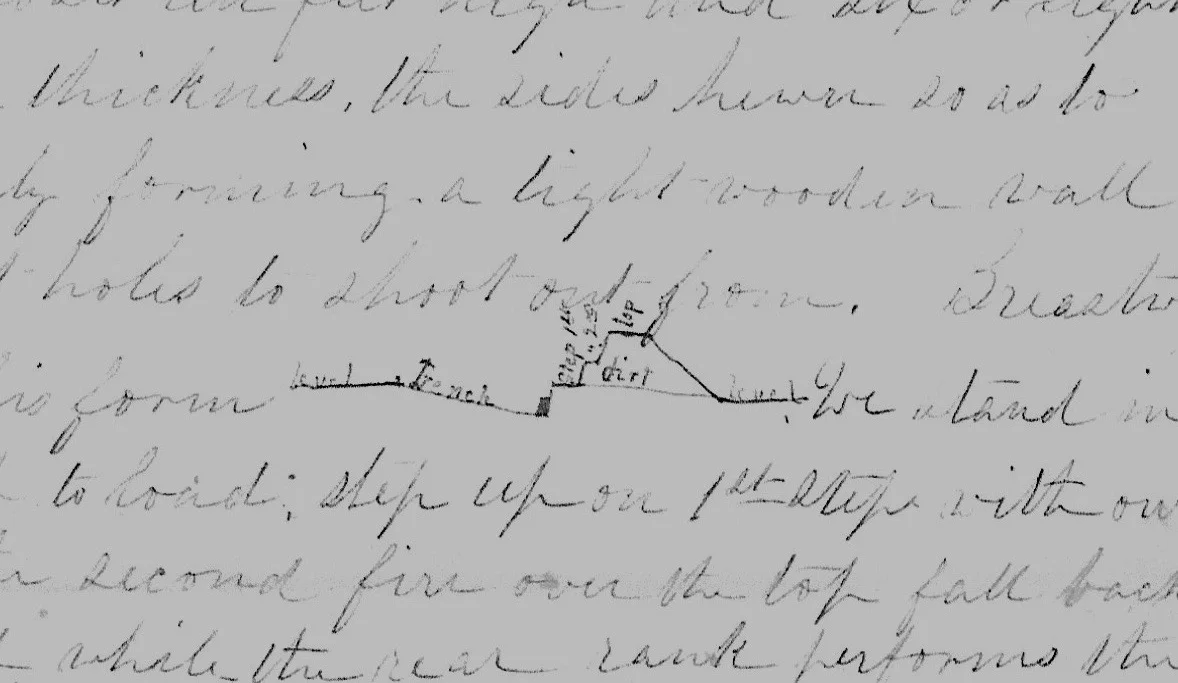 feet high and six or eight
thickness, the sides hewn so as to
forming a tight wooden wall
holes to shoot out from. Breastw
is form level Trench Step 1st " 2nd top dirt level We stand in
to load; step up on 1st step with ou
second fire over the top fall back
while the rear rank performs the